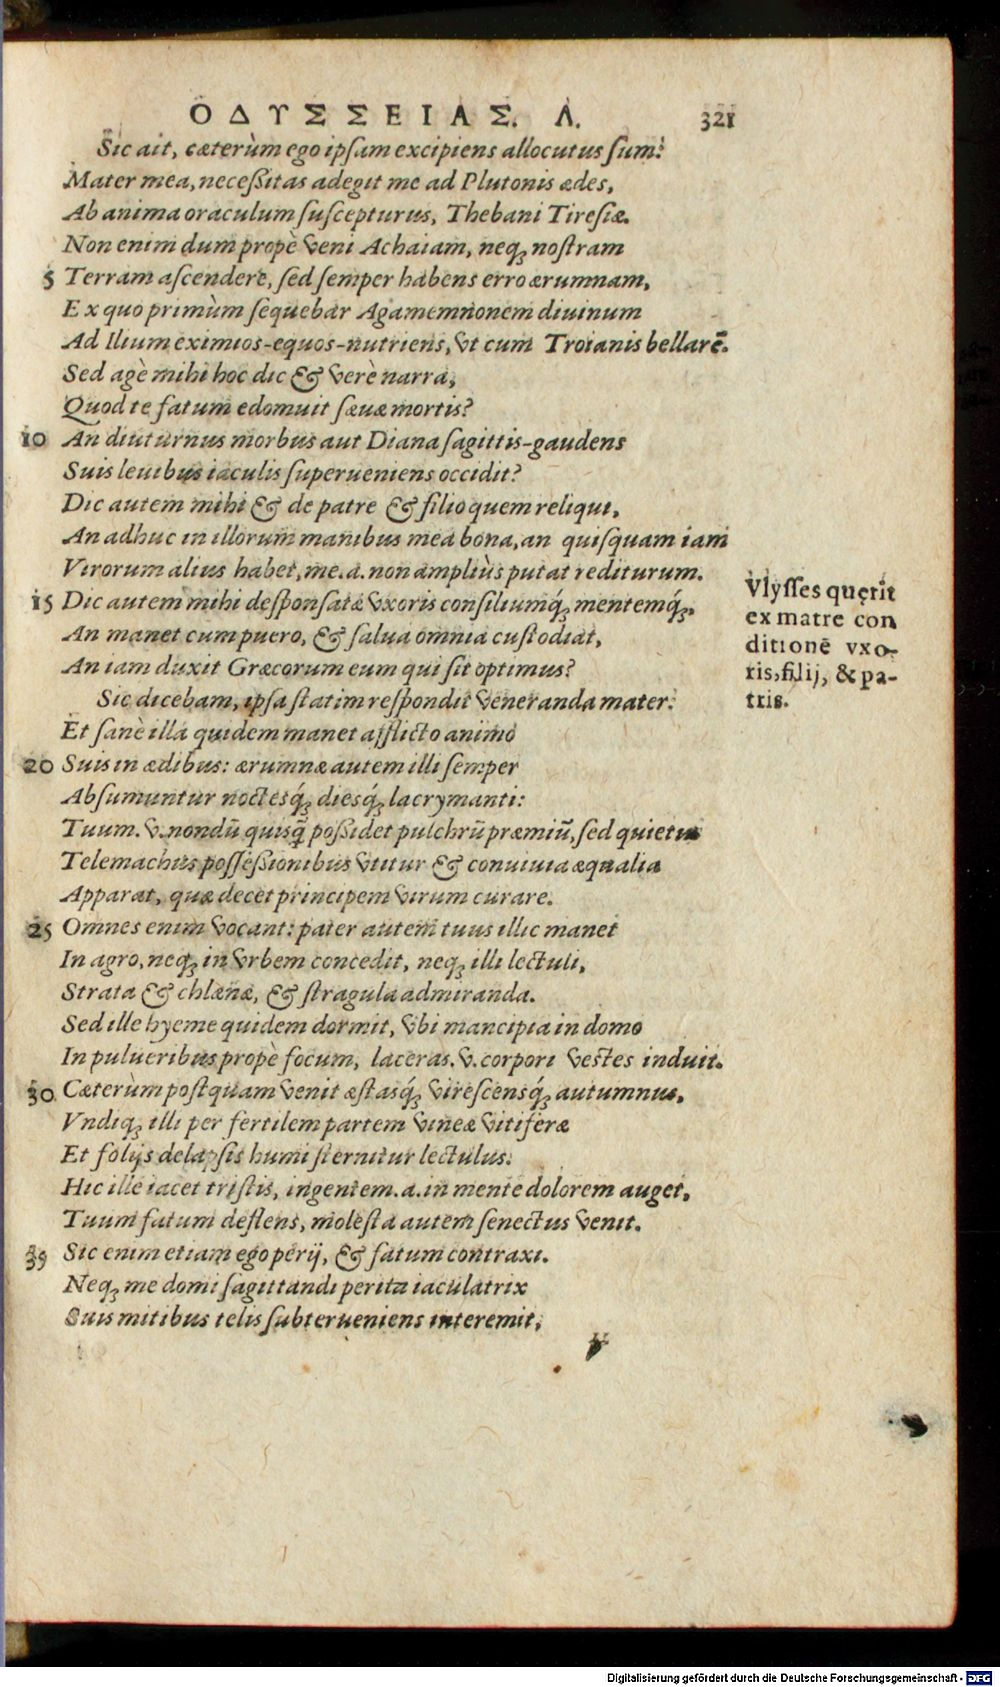 ΟΔΥΣΣΕΙΑΣ. Λ. 321
Sic ait, cæterùm ego ipsam excipiens allocutus sum:
Mater mea, necessitas adegit me ad Plutonis ædes,
Ab anima oraculum suscepturus, Thebani Tiresiæ.
Non enim dum propè veni Achaiam, neq; nostram
5 Terram ascendere, sed semper habens erro ærumnam,
Ex quo primùm sequebar Agamemnonem diuinum
Ad Ilium eximios-equos-nutriens, vt cum Troianis bellarē.
Sed agè mihi hoc dic & verè narra,
Quod te fatum edomuit sæuæ mortis?
10 An diuturnus morbus aut Diana sagittis-gaudens
Suis leuibus iaculis superueniens occidit?
Dic autem mihi & de patre & filio quem reliqui,
An adhuc in illorum manibus mea bona, an quisquam iam
Virorum alius habet, me.a. non ampliùs putat rediturum.
15 Dic autem mihi desponsatæ vxoris consiliumq́; mentemq́;,
An manet cum puero, & salua omnia custodiat,
An iam duxit Græcorum eum qui sit optimus?
Sic dicebam, ipsa statim respondit veneranda mater:
Et sanè illa quidem manet afflicto animo
20 Suis in ædibus: ærumnæ autem illi semper
Absumuntur noctesq́; diesq́; lacrymanti:
Tuum.v. nondū quisq̄ possidet pulchrū præmiū, sed quietus
Telemachus possessionibus vtitur & conuiuia æqualia
Apparat, quæ decet principem virum curare.
25 Omnes enim vocant: pater autem tuus illic manet
In agro, neq; in vrbem concedit, neq; illi lectuli,
Strata & chlænæ, & stragula admiranda.
Sed ille hyeme quidem dormit, vbi mancipia in domo
In pulueribus propè focum, laceras.v. corpori vestes induit.
30 Cæterùm postquam venit æstasq́; virescensq́; autumnus,
Vndiq; illi per fertilem partem vineæ vitiferæ
Et folijs delapsis humi sternitur lectulus:
Hic ille iacet tristis, ingentem.a. in mente dolorem auget,
Tuum fatum deflens, molesta autem senectus venit.
35 Sic enim etiam ego perij, & fatum contraxi.
Neq; me domi sagittandi perita iaculatrix
Suis mitibus telis subterueniens interemit,
Vlysses quęrit
ex matre con
ditionē vxo-
ris, filij, & pa-
tris.
Digitalisierung gefördert durch die Deutsche Forschungsgemeinschaft - DFG